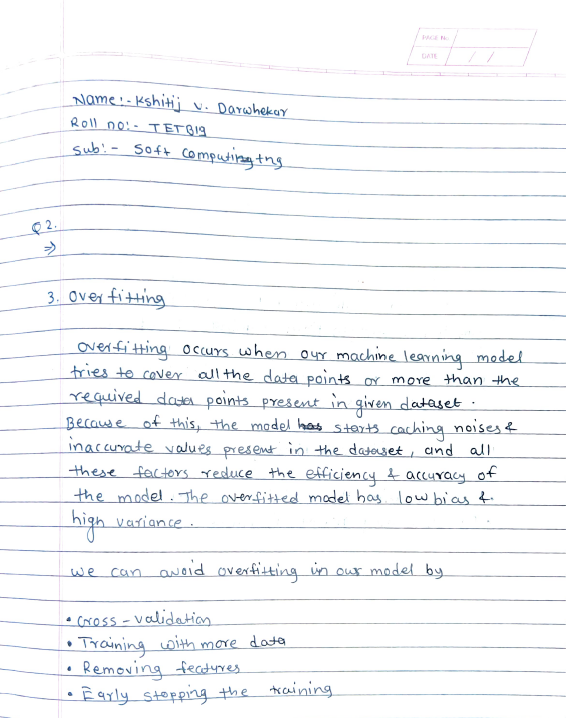 PAGE No.
DATE / /
Name:- Kshitij V. Darwhekar
Roll no:- TETB19
Sub:- Soft Computing
Q 2.
⇒
3. Overfitting
Overfitting occurs when our machine learning model
tries to cover all the data points or more than the
required data points present in given dataset.
Because of this, the model starts caching noises &
inaccurate values present in the dataset, and all
these factors reduce the efficiency & accuracy of
the model. The overfitted model has low bias &
high variance.
we can avoid overfitting in our model by
• Cross-validation
• Training with more data
• Removing features
• Early stopping the training